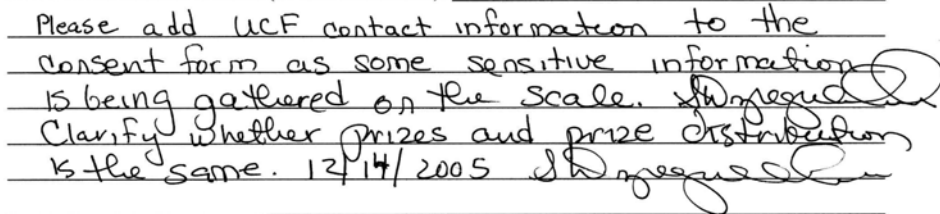 Please add UCF contact information to the
consent form as some sensitive information
is being gathered on the scale.
Clarify whether prizes and prize distribution
is the same. 12/14/2005